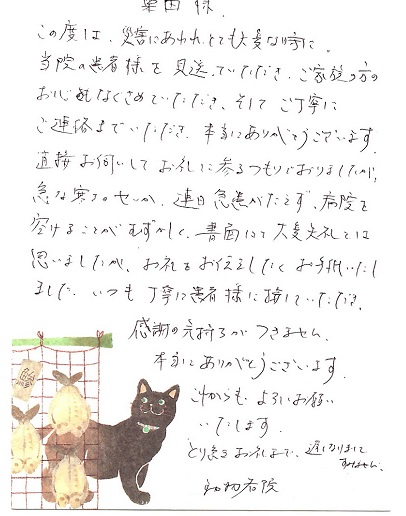 栗田 様.
この度は、災害にあわれ、とても大変な時に、
当院の患者様を見送っていただき、ご家族の方の
お心もなぐさめていただき、そして ご丁寧に
ご連絡までいただき、本当にありがとうございます.
直接お伺いして お礼に参るつもりでおりましたが、
急な寒さのせいか、連日急患がたえず、病院を
空けることがむずかしく、書面にて大変失礼とは
思いましたが、お礼をお伝えしたくお手紙いたし
ました. いつも丁寧に患者様に接していただき、
感謝の気持ちがつきません.
本当にありがとうございます.
これからも よろしくお願い
いたします.
とり急ぎ お礼まで. 遅くなりまして
すみません.
動物病院